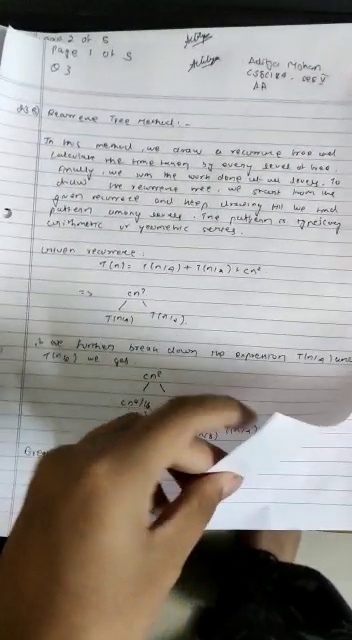 2 of 5
Page 1 of 5
Q 3
Aditya Mohan
AA
Recurrence Tree Method :-
In this method, we draw a recurrence tree and
calculate the time taken by every level of tree.
Finally, we sum the work done at all levels. To
draw the recurrence tree, we start from the
given recurrence and keep drawing till we find
pattern among levels. The pattern is typically
arithmetic or geometric series.
Given recurrence:
T(n) = T(n/4) + T(n/2) + cn²
=> cn²
T(n/4) T(n/2)
we further break down the expression T(n/4) and
T(n/2) we get
cn²
cn²/16